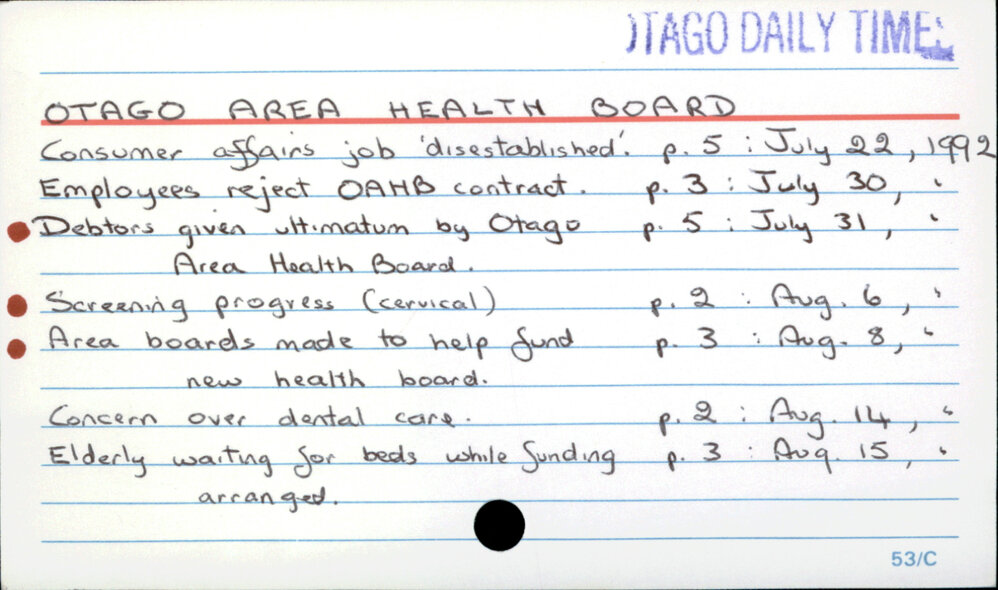 OTAGO DAILY TIMES
OTAGO AREA HEALTH BOARD
Consumer affairs job 'disestablished'. p. 5 : July 22, 1992
Employees reject OAHB contract. p. 3 : July 30, "
Debtors given ultimatum by Otago p. 5 : July 31, "
Area Health Board.
Screening progress (cervical) p. 2 : Aug. 6, "
Area boards made to help fund p. 3 : Aug. 8, "
new health board.
Concern over dental care. p. 2 : Aug. 14, "
Elderly waiting for beds while funding p. 3 : Aug. 15, "
arranged.
53/C